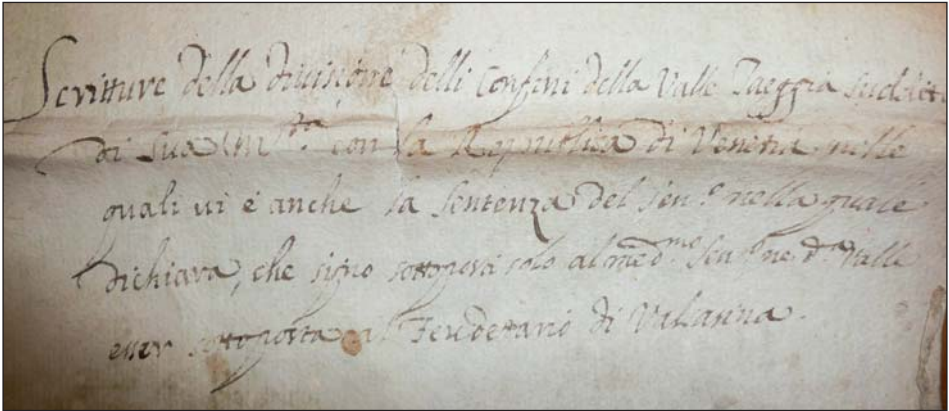 Scritture della divisione delli Confini della Valle Taeggia sudditi
di Sua M.tà con la Republica di Venetia nelle
quali vi è anche la sentenza del Sen.º nella quale
dichiara, che siano sottoposti solo al med.mo Sen.º ne d.ª Valle
esser sottoposta al Feudetario di Valasina.